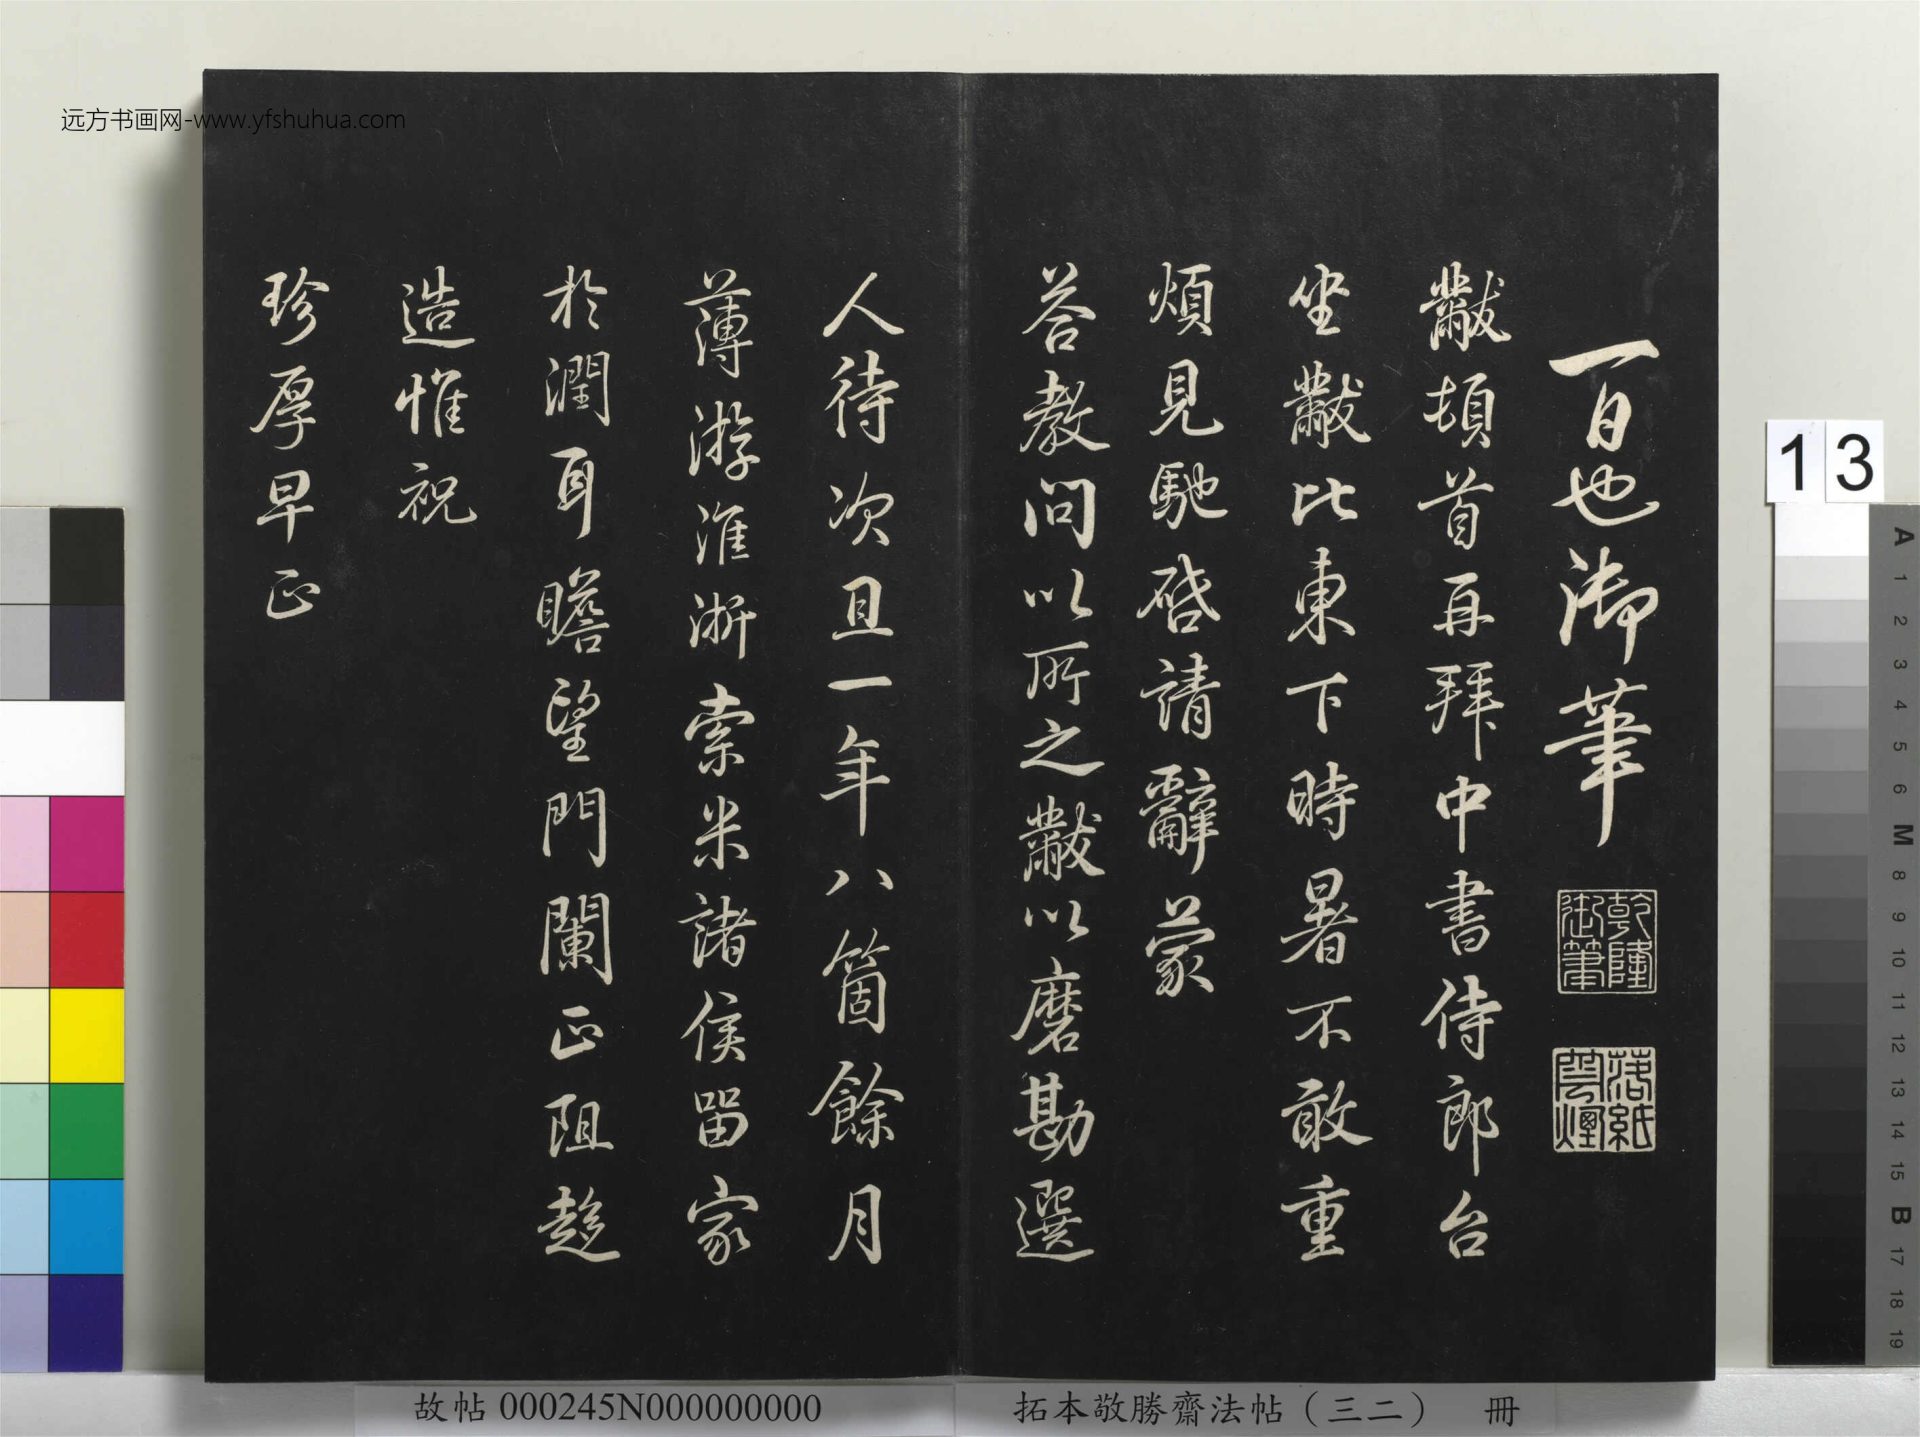 远方书画网-www.yfshuhua.com
一日也御筆
乾隆御筆
落紙雲煙
黻頓首再拜中書侍郎台
坐黻比東下時暑不敢重
煩見馳啓請辭蒙
荅教問以所之黻以磨勘選
人待次且一年八箇餘月
薄游淮浙索米諸侯留家
於潤耳瞻望門闌正阻趍
造惟祝
珍厚早正
13
A
1
2
3
4
5
6
M
8
9
10
11
12
13
14
15
B
17
18
19
故帖 000245N000000000
拓本敬勝齋法帖（三二） 冊